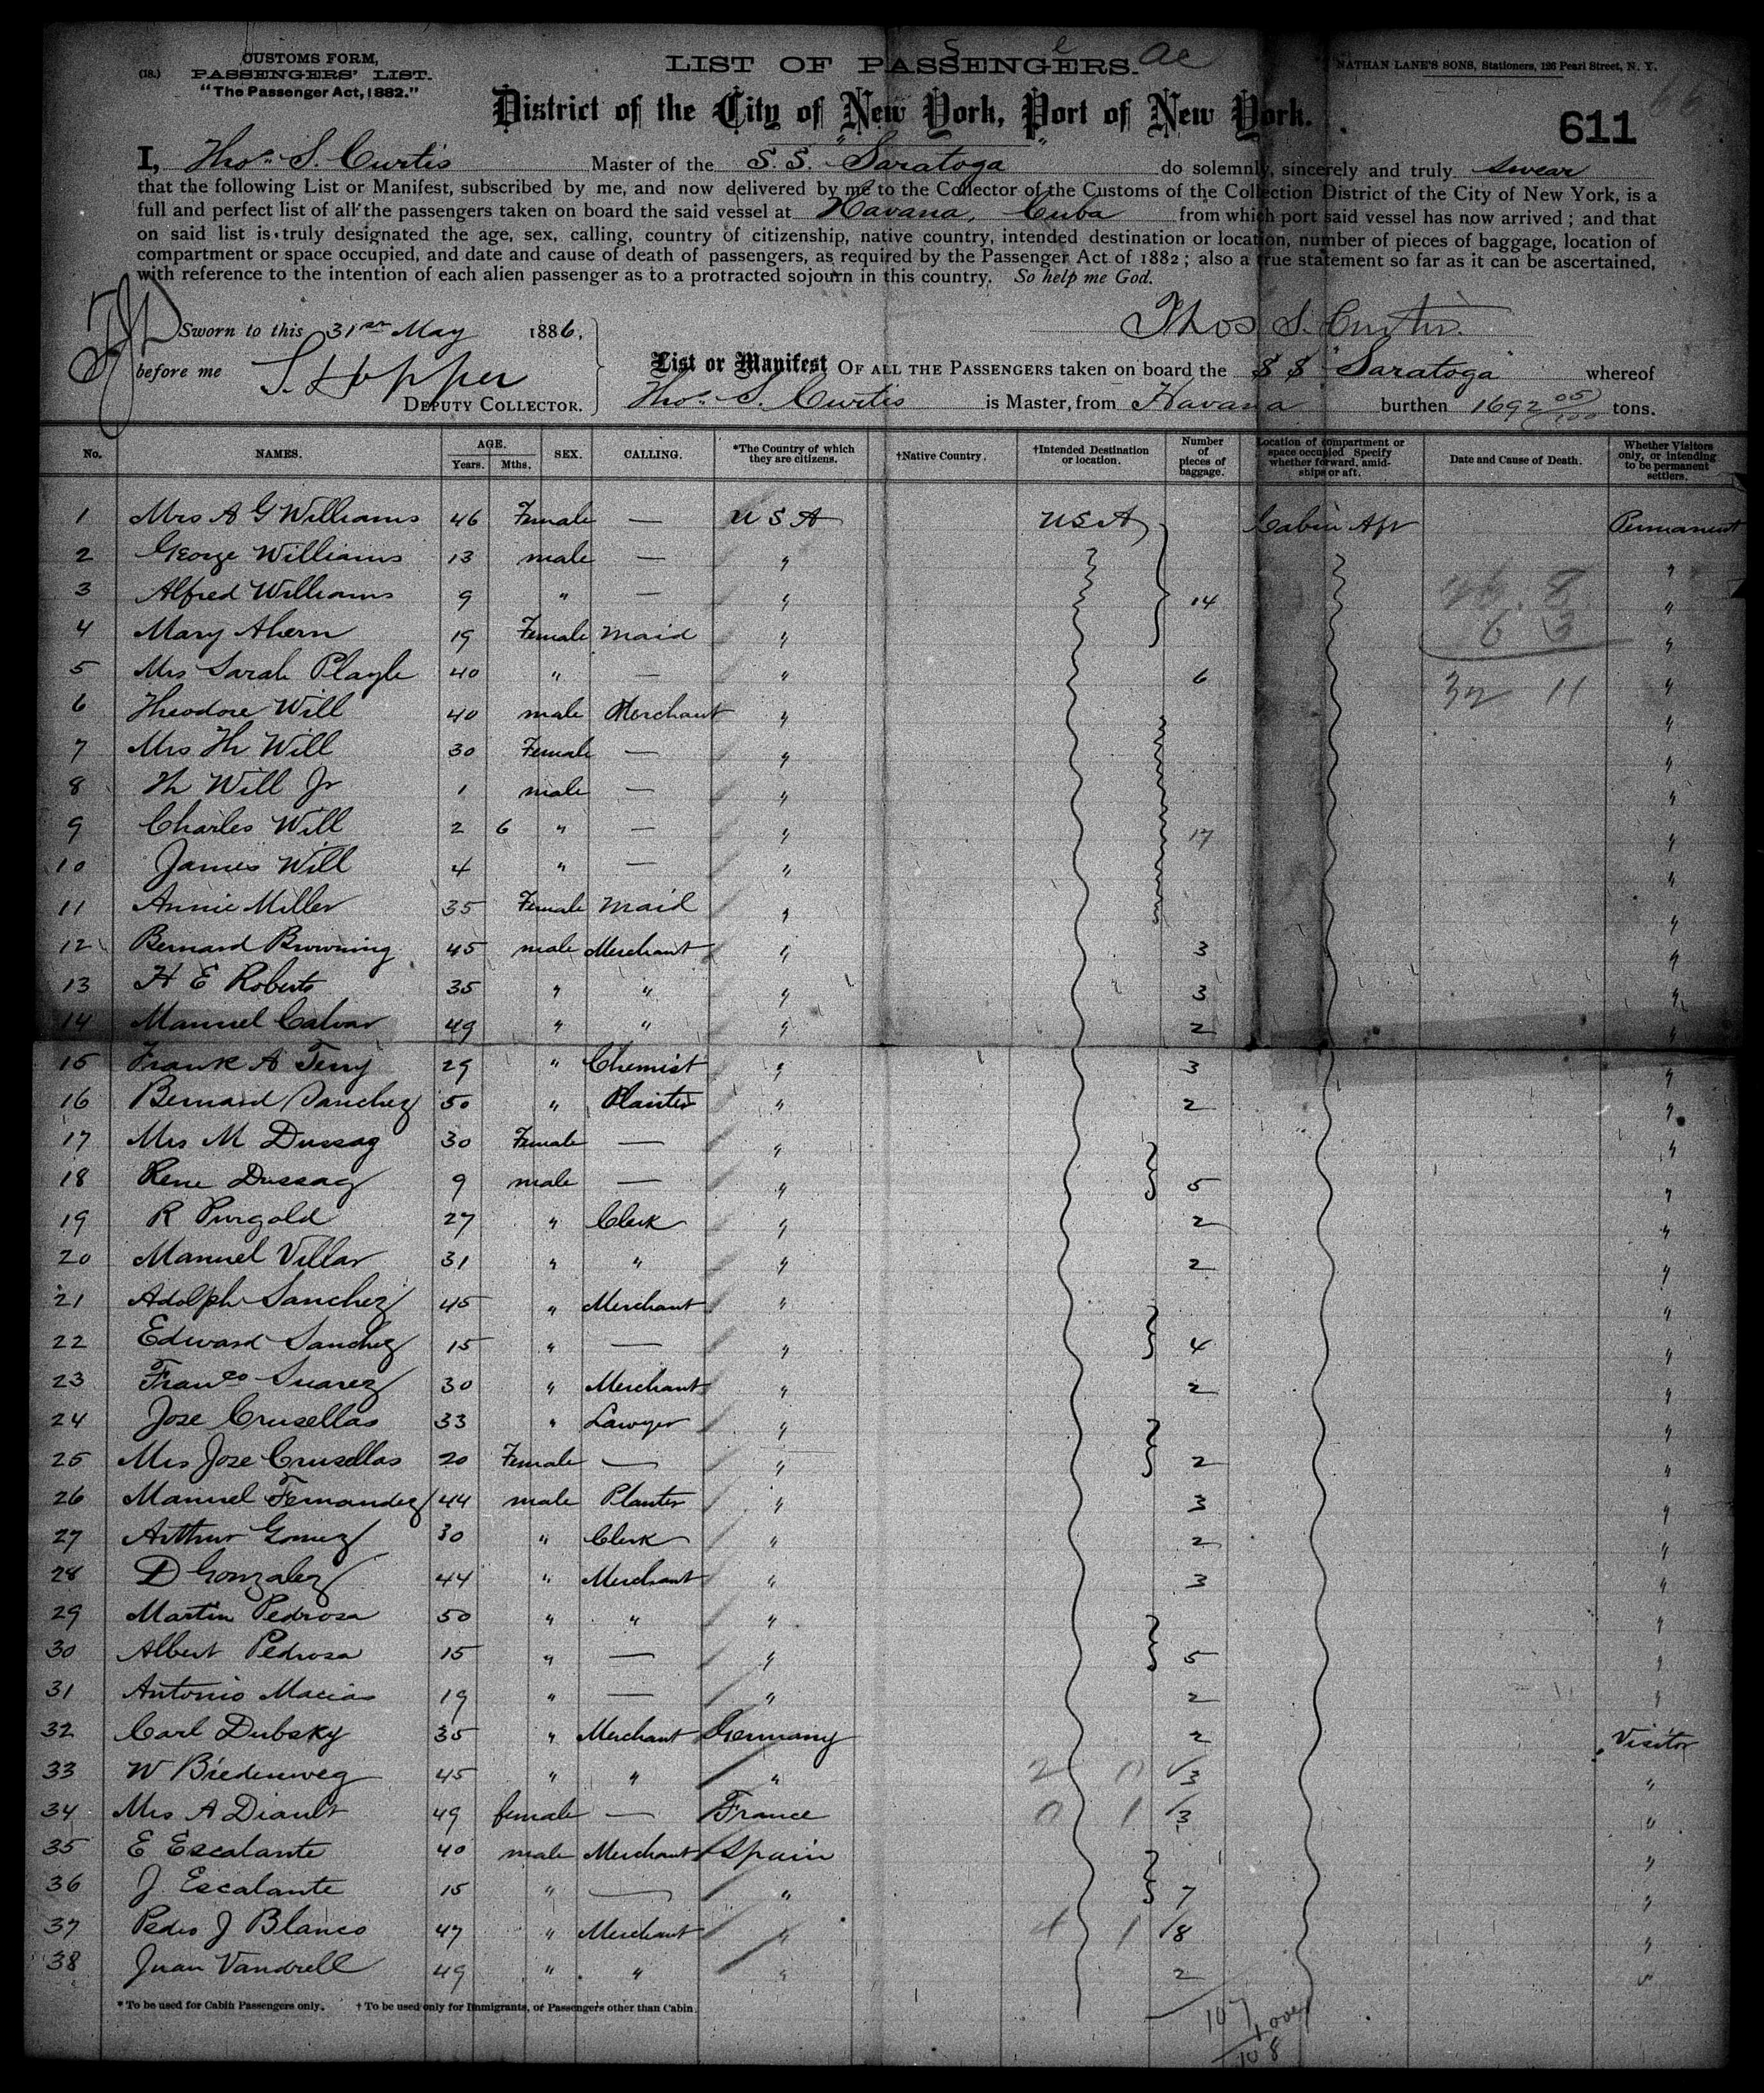 (18.)
CUSTOMS FORM,
PASSENGERS' LIST.
"The Passenger Act, 1882."
LIST OF PASSENGERS.
NATHAN LANE'S SONS, Stationers, 126 Pearl Street, N. Y.
District of the City of New York, Port of New York.
611
I, Thos. S. Curtis Master of the S. S. "Saratoga" do solemnly, sincerely and truly swear
that the following List or Manifest, subscribed by me, and now delivered by me to the Collector of the Customs of the Collection District of the City of New York, is a
full and perfect list of all the passengers taken on board the said vessel at Havana, Cuba from which port said vessel has now arrived; and that
on said list is truly designated the age, sex, calling, country of citizenship, native country, intended destination or location, number of pieces of baggage, location of
compartment or space occupied, and date and cause of death of passengers, as required by the Passenger Act of 1882; also a true statement so far as it can be ascertained,
with reference to the intention of each alien passenger as to a protracted sojourn in this country. So help me God.
Thos S. Curtis.
Sworn to this 31st May 1886,
before me S. Hopper
DEPUTY COLLECTOR.
List or Manifest OF ALL THE PASSENGERS taken on board the S S "Saratoga" whereof
Thos. S. Curtis is Master, from Havana burthen 1692 05/100 tons.
No. NAMES. AGE. Years. Mths. SEX. CALLING. *The Country of which they are citizens. †Native Country. †Intended Destination or location. Number of pieces of baggage. Location of compartment or space occupied Specify whether forward, amidships or aft. Date and Cause of Death. Whether Visitors only, or intending to be permanent settlers.
1 Mrs A G Williams 46 Female — U S A USA Cabin Aft Permanent
2 George Williams 13 male — " "
3 Alfred Williams 9 " — " 14 "
4 Mary Ahern 19 Female maid " "
5 Mrs Sarah Playle 40 " — " 6 "
6 Theodore Will 40 male Merchant " "
7 Mrs Th Will 30 Female — " "
8 Th Will Jr 1 male — " "
9 Charles Will 2 6 " — " 17 "
10 James Will 4 " — " "
11 Annie Miller 35 Female maid " "
12 Bernard Browning 45 male Merchant " 3 "
13 H E Roberts 35 " " " 3 "
14 Manuel Calvar 49 " " " 2 "
15 Frank A Terry 29 " Chemist " 3 "
16 Bernard Sanchez 50 " Planter " 2 "
17 Mrs M Dussaq 30 Female — " "
18 Rene Dussaq 9 male — " 5 "
19 R Purgold 27 " Clerk " 2 "
20 Manuel Villar 31 " " " 2 "
21 Adolph Sanchez 45 " Merchant " "
22 Edward Sanchez 15 " — " 4 "
23 Franco Suarez 30 " Merchant " 2 "
24 Jose Crusellas 33 " Lawyer " "
25 Mrs Jose Crusellas 20 Female — " 2 "
26 Manuel Fernandez 44 male Planter " 3 "
27 Arthur Gomez 30 " Clerk " 2 "
28 D Gonzalez 44 " Merchant " 3 "
29 Martin Pedrosa 50 " " " "
30 Albert Pedrosa 15 " — " 5 "
31 Antonio Macias 19 " — " 2 "
32 Carl Dubsky 35 " Merchant Germany 2 Visitor
33 W Biedenweg 45 " " " 3 "
34 Mrs A Diault 49 female — France 3 "
35 E Escalante 40 male Merchant Spain "
36 J. Escalante 15 " — " 7 "
37 Pedro J Blanco 47 " Merchant " 8 "
38 Juan Vandrell 49 " " " 2 "
* To be used for Cabin Passengers only. † To be used only for Immigrants, or Passengers other than Cabin.
107
1 over
108